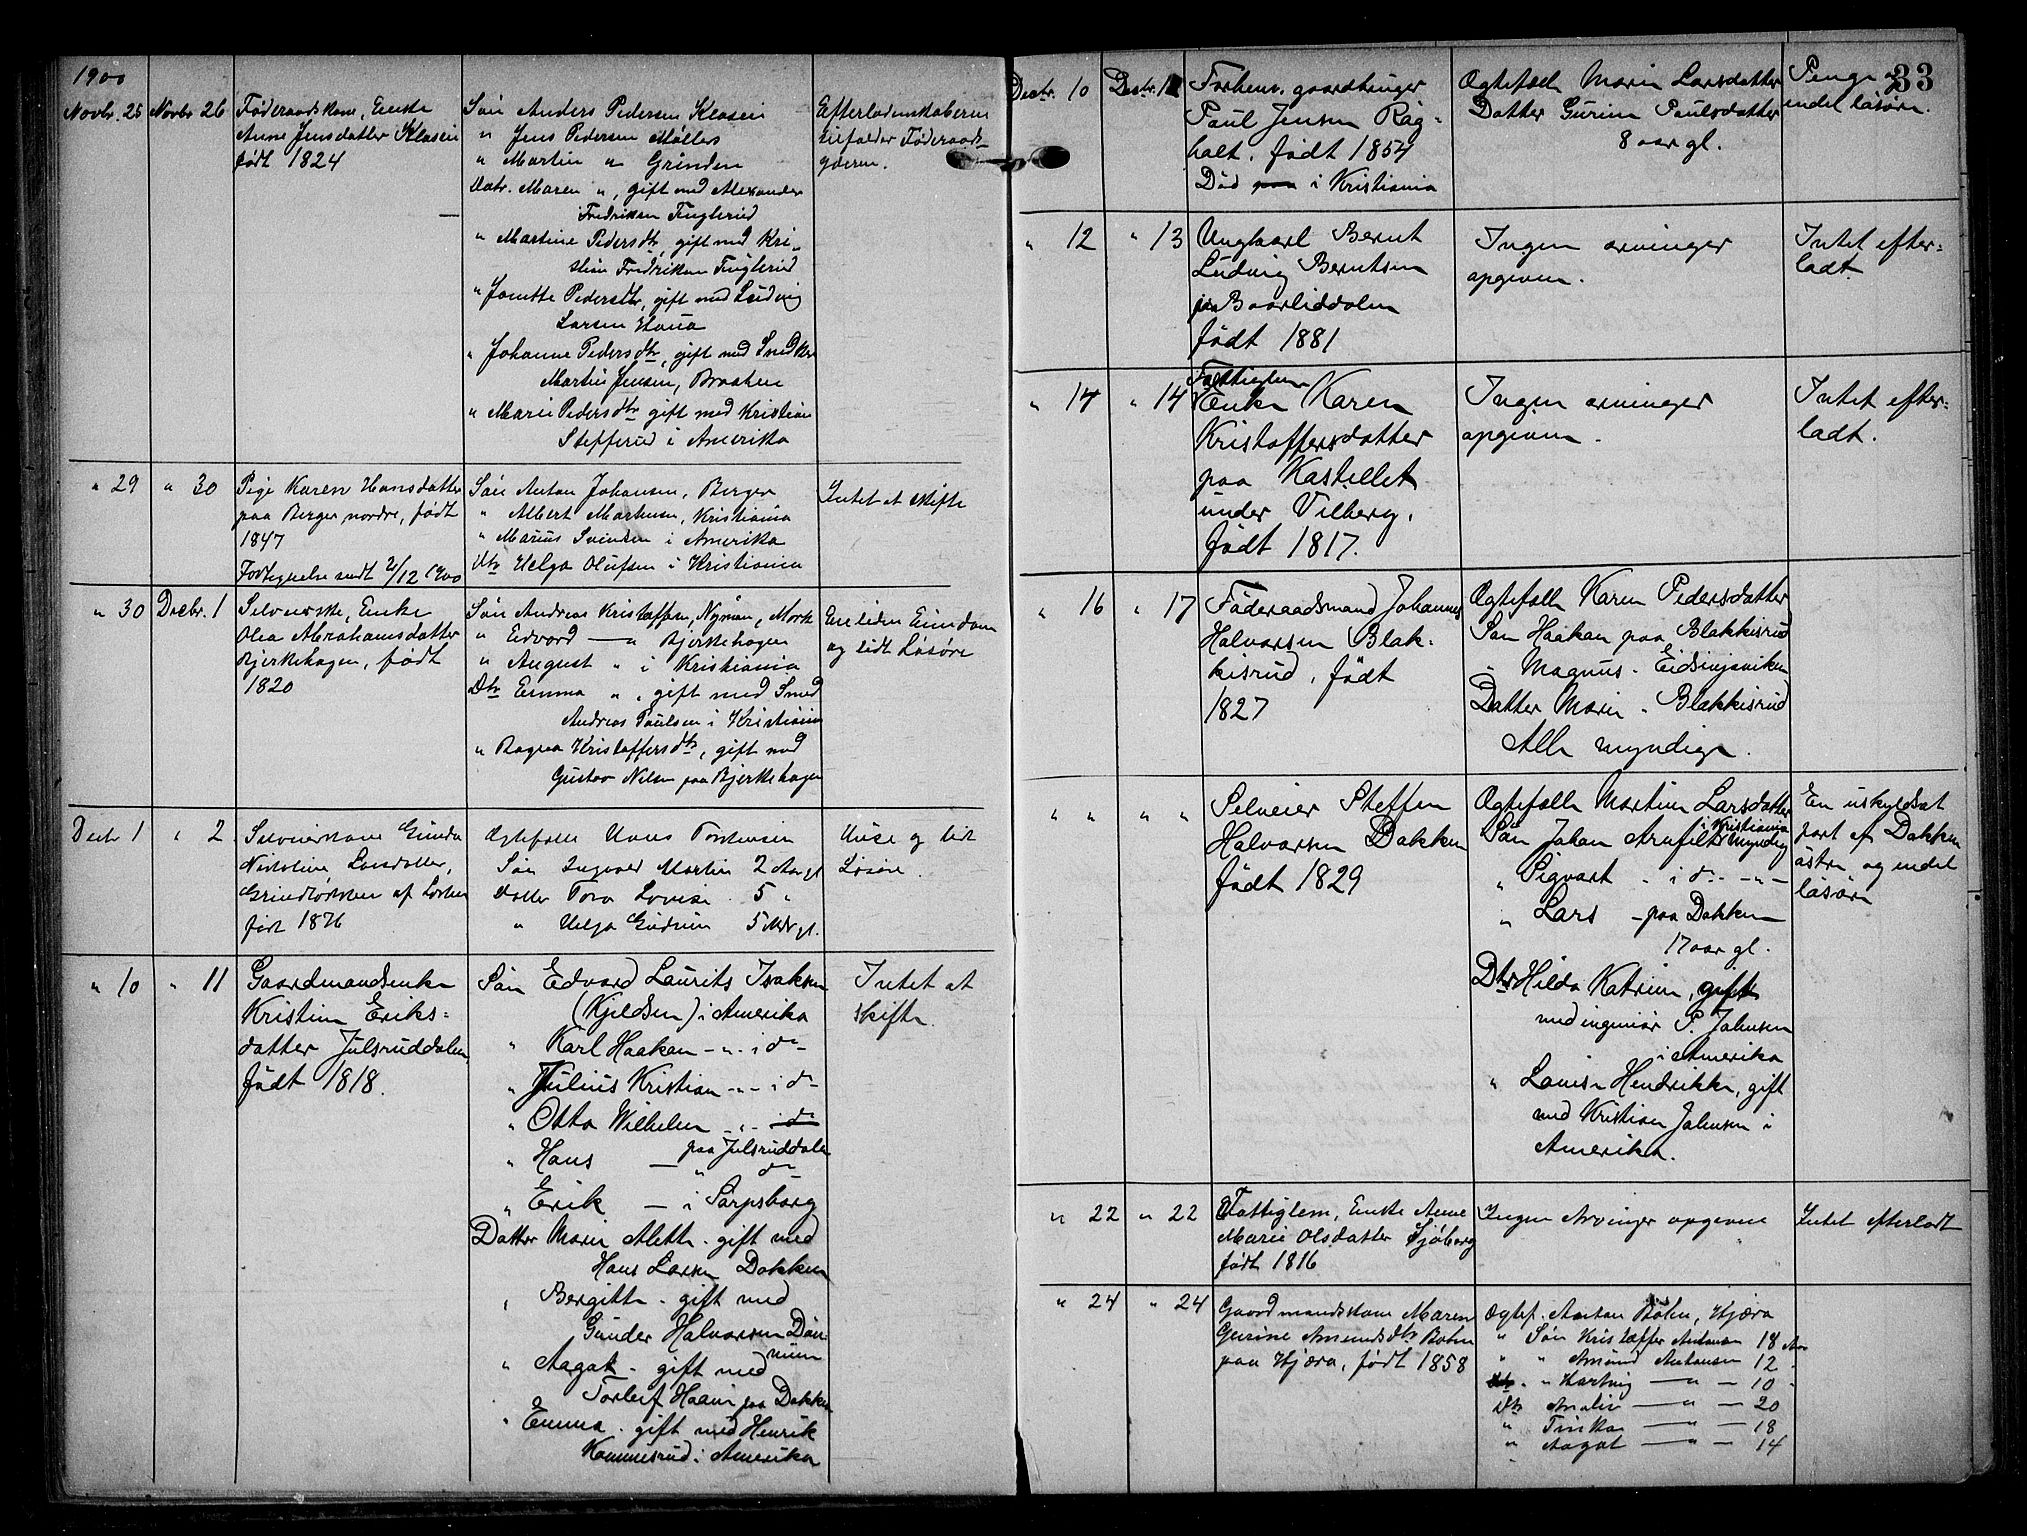 1900
Novbr. 25 Novbr 26 Føderaadskone, Enke
Anne Jensdatter Klasen
født 1824
Søn Anders Pedersen Klasen
" Jens Pedersen Møllers
" Martin " Grinden
Datr. Maren ", gift med Alexander
Fredriksen Tinglerud
" Martine Pedersdtr, gift med Kri-
stian Fredriksen Tinglerud
" Jonette Pedersdtr, gift med Ludvig
Larsen Haua
" Johanne Pedersdtr, gift med Snedker
Martin Jensen, Braaten
" Marie Pedersdtr gift med Kristian
Stefferud i Amerika
Efterladenskaberne
tilfalder Føderaads-
yderen.
" 29 " 30 Pige Karen Hansdatter
paa Berger nordre, født
1847
Fortegnelse sendt 2/12 1900
Søn Anton Johansen, Berger
" Albert Martinsen, Kristiania
" Marius Svendsen i Amerika
Dtr Helga Olufsen i Kristiania
Intet at skifte
" 30 Decbr. 1 Selveierske, Enke
Olea Abrahamsdatter
Bjerkehagen, født
1820
Søn Andreas Kristoffersen, Nyman, Mork
" Edvard — " Bjerkehagen
" August " i Kristiania
Dtr Emma ", gift med Smed
Andreas Paulsen i Kristiania
" Ragna Kristoffersdtr, gift med
Gustav Nilsen paa Bjerkehagen
En liden Eiendom
og lidt Løsøre
Decbr 1 " 2 Selveierkone Gunda
Nikoline Larsdatter,
født 1876
Ægtefælle Hans Torstensen
Søn Ingvar Martin 2 Aar gl
Datter Tora Lovise 5 "
" Helga Gudrun 5 Mdr gl.
Huse og lidt
Løsøre.
" 10 " 11 Gaardmandsenke
Kristine Eriks-
datter Julsruddalen,
født 1818.
Søn Edvard Laurits Isaksen
(Kjeldsen) i Amerika
" Karl Haakon - " - i do
" Julius Kristian - " - i do
" Otto Wilhelm - " - i do
paa Julsruddalen
" Hans — " do
" Erik — i Sarpsborg
Datter Marie Alette - gift med
Hans Larsen Dokken
" Bergitte - gift med
Gunder Halvorsen Døn-
num
" Aagat - gift med
Torleif Haavi paa Dokken
" Emma - gift med Henrik
Kommesrud i Amerika
Intet at
skifte.
33
Decbr. 10 Decbr. 12 Forhenv. gaardbruger
Paul Jensen Rag-
holt. født 1854
Død paa i Kristiania
Ægtefælle Marie Larsdatter
Datter Gurine Paulsdatter
8 aar gl.
Penge og
endel løsøre.
" 12 " 13 Ungkarl Bernt
Ludvig Berntsen
paa Baarliddalen
født 1881
Ingen arvinger
opgiven.
Intet efter-
ladt.
" 14 " 14 Fattiglem
Enke Karen
Kristoffersdatter
paa Kastillet
under Vilberg.
født 1817.
Ingen arvinger
opgiven.
Intet efter-
ladt.
" 16 " 17 Føderaadsmand Johannes
Halvorsen Blak-
kisrud, født
1827
Ægtefælle Karen Pedersdatter
Søn Haakon paa Blakkisrud
" Magnus - Eidsingsviken
Datter Marie - Blakkisrud
Alle myndige.
" " " " Selveier Steffen
Halvorsen Dokken
født 1829
Ægtefælle Martine Larsdatter
i Kristiania
Søn Johan Arnfilt myndig
" Sigvart - i do - " -
" Lars - paa Dokken
17 aar gl.
Dtr Hilda Katrine, gift
med ingeniør P. Johnsen
i Amerika
" Louise Hendrikke, gift
med Kristian Johnsen i
Amerika.
En uskyldsat
part af Dokken
østre og endel
løsøre
" 22 " 22 Fattiglem, Enke Anne
Marie Olsdatter Sjøberg
født 1816
Ingen Arvinger opgivne
Intet efterladt
" 24 " 24 Gaardmandskone Maren
Gurine Amundsdtr Bøhn
paa Hjæra, født 1858
Ægtef. Anton Bøhn, Hjæra
" Søn Kristoffer Antonsen 18 Aar
" " Amund Antonsen 12 "
" " Hartvig — " — 10 "
Dtr Amalie — " — 20
" Tinka — " — 18
" Aagot — " — 14